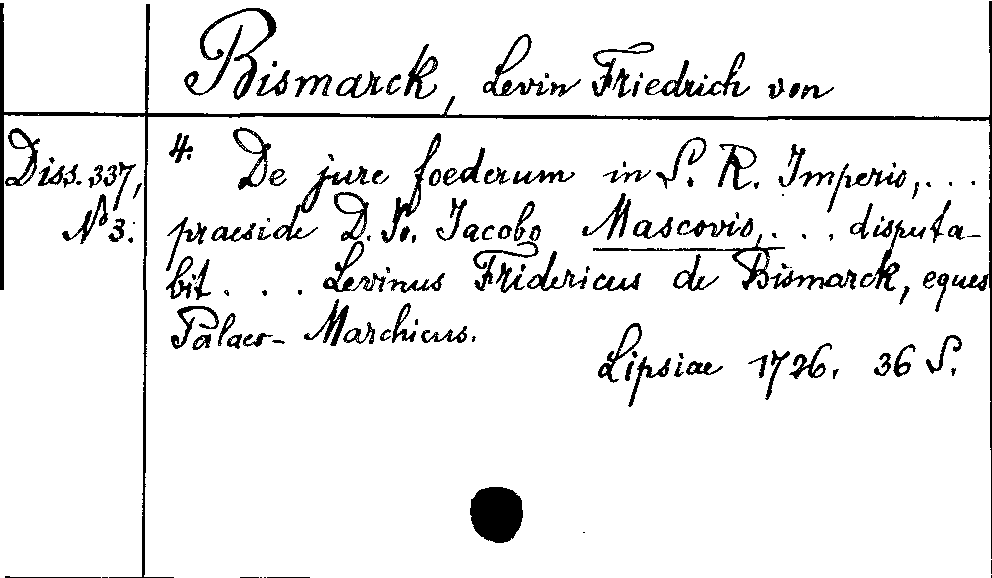 Bismarck, Levin Friedrich von
Diss. 337,
No 3.
4. De jure foederum in S. R. Imperio, . . .
praeside D. Jo. Jacobo Mascovio, . . . disputa-
bit . . . Levinus Fridericus de Bismarck, eques
Palaeo-Marchicus.
Lipsiae 1726. 36 S.